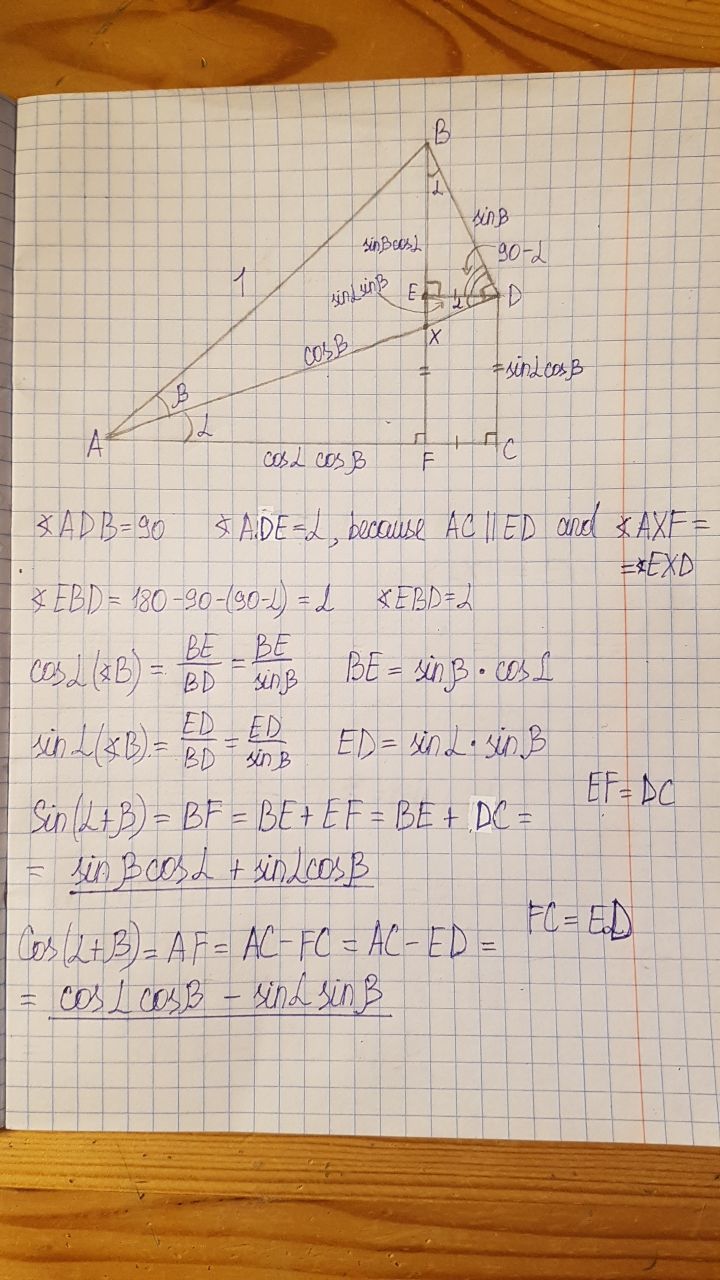 B
α
sinβ
sinβcosα
90-α
1
sinαsinβ
E
α
D
X
cosβ
sinαcosβ
β
A
α
cosα cosβ
F
C
∢ADB=90 ∢ADE=α, because AC || ED and ∢AXF=
=∢EXD
∢EBD = 180-90-(90-α) = α ∢EBD=α
cosα(∢B) = BE/BD = BE/sinβ BE = sinβ · cosα
sinα(∢B) = ED/BD = ED/sinβ ED = sinα · sinβ
EF = DC
Sin(α+β) = BF = BE + EF = BE + DC =
= sinβcosα + sinαcosβ
FC = ED
Cos(α+β) = AF = AC - FC = AC - ED =
= cosα cosβ - sinα sinβ